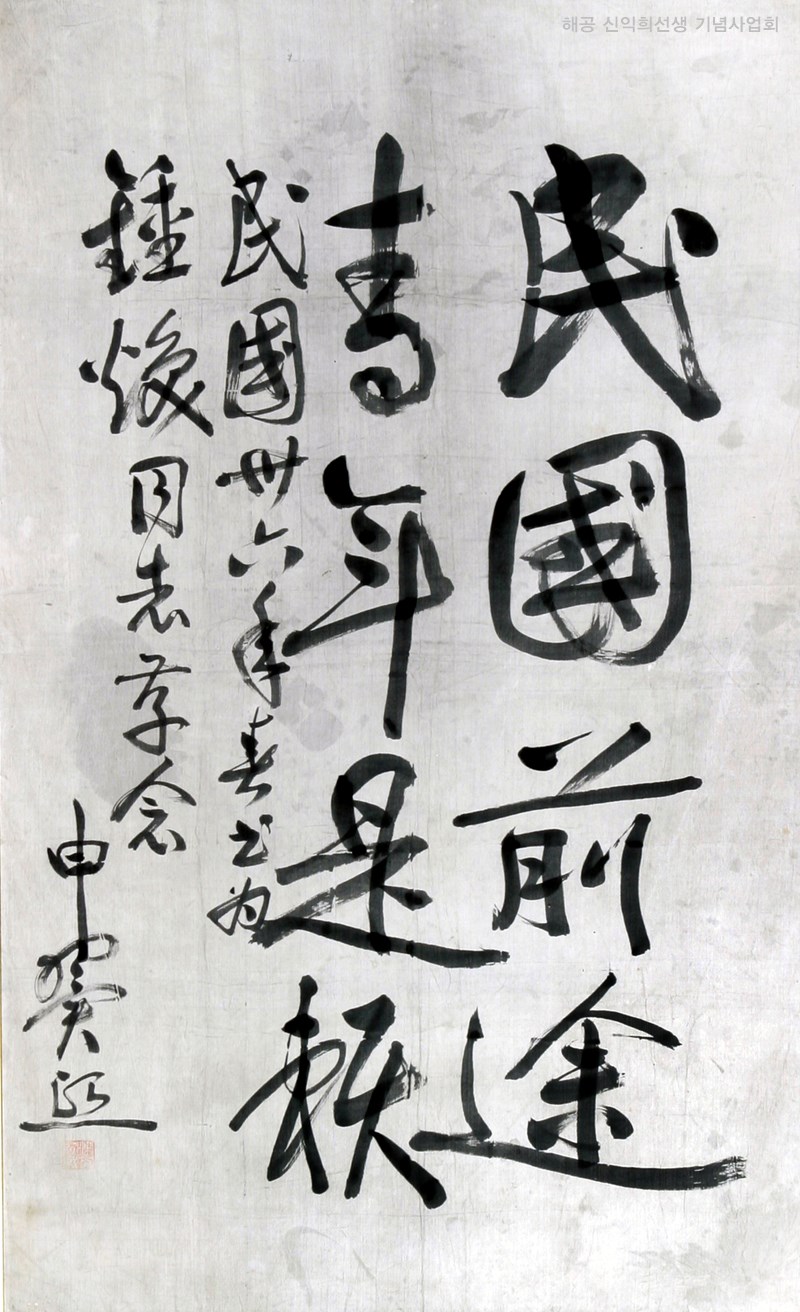 해공 신익희선생 기념사업회
民國前途
靑年是賴
民國卅六年春書为
鍾煥同志存念
申翼熙